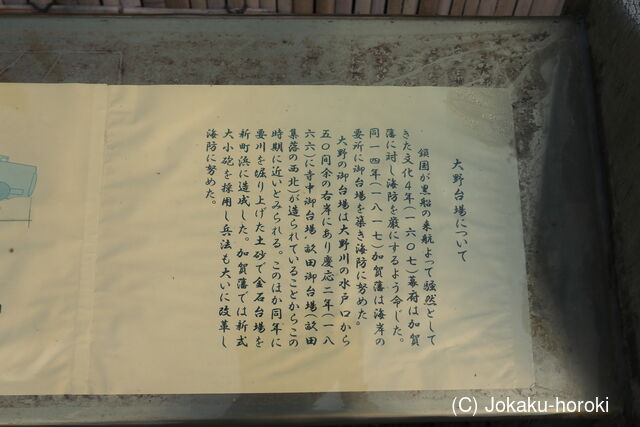 大野台場について
鎖国が黒船の来航よって騒然として
きた文化4年(一六〇七)幕府は加賀
藩に対し海防を厳にするよう命じた。
同一四年(一八一七)加賀藩は海岸の
要所に御台場を築き海防に努めた。
大野の御台場は大野川の水戸口から
五〇間余の右岸にあり慶応二年(一八
六六)に寺中御台場畝田御台場(畝田
集落の西北)が造られていることからこの
時期に近いとみられる。このほか同年に
要川を堀り上げた土砂で金石台場を
新町浜に造成した。加賀藩では新式
大小砲を採用し兵法も大いに改革し
海防に努めた。
(C) Jokaku-horoki